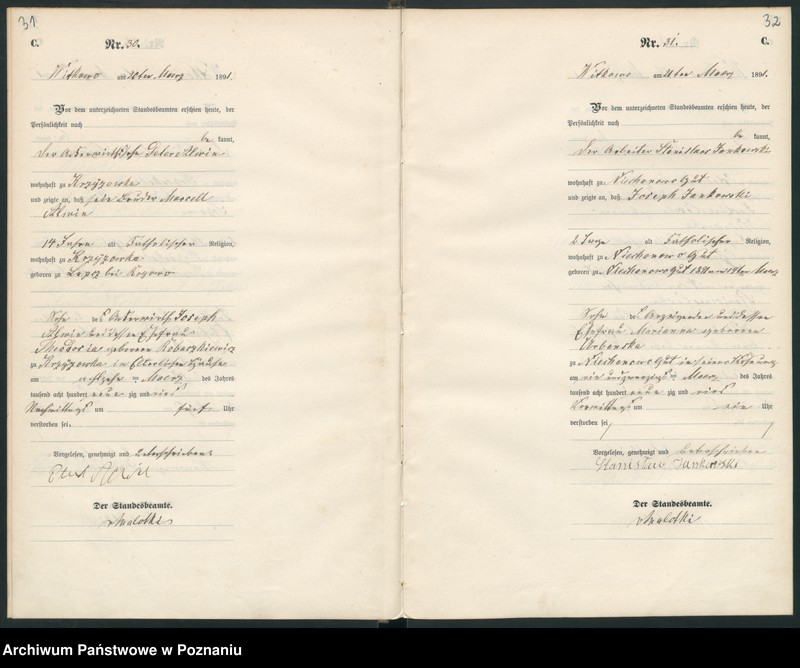 31
C.
Nr. 30.
Witkowo am 20ten Maerz 1891.
Vor dem unterzeichneten Standesbeamten erschien heute, der
Persönlichkeit nach
be kannt,
der
wohnhaft zu Krzyżowka
und zeigte an, daß sein Bruder Marcell
14 Jahre alt Katholischer Religion,
wohnhaft zu Krzyżowka
geboren zu bei
Sohn des Ackerwirth Joseph
Ehefrau
Theodosia geborenen
zu Krzyżowka in
am achtzehnten Maerz des Jahres
tausend acht hundert neun zig und eins
Nachmittags um fünf Uhr
verstorben sei.
Vorgelesen, genehmigt und unterschrieben
Der Standesbeamte.
32
Nr. 31.
C.
Witkowo am 21ten Maerz 1891.
Vor dem unterzeichneten Standesbeamten erschien heute, der
Persönlichkeit nach
be kannt,
der Arbeiter Stanislaus Jankowski
wohnhaft zu Niechanowo Gut
und zeigte an, daß Joseph Jankowski
2 Tage alt Katholischer Religion,
wohnhaft zu Niechanowo Gut
geboren zu Niechanowo Gut
Sohn des Anzeigenden und dessen
Ehefrau Marianna geborenen
Urbanska
zu Niechanowo Gut in seiner Wohnung
am ein und zwanzigsten Maerz des Jahres
tausend acht hundert neun zig und eins
Vormittags um ein Uhr
verstorben sei
Vorgelesen, genehmigt und unterschrieben
Stanislus Jankowski
Der Standesbeamte.
Archiwum Państwowe w Poznaniu